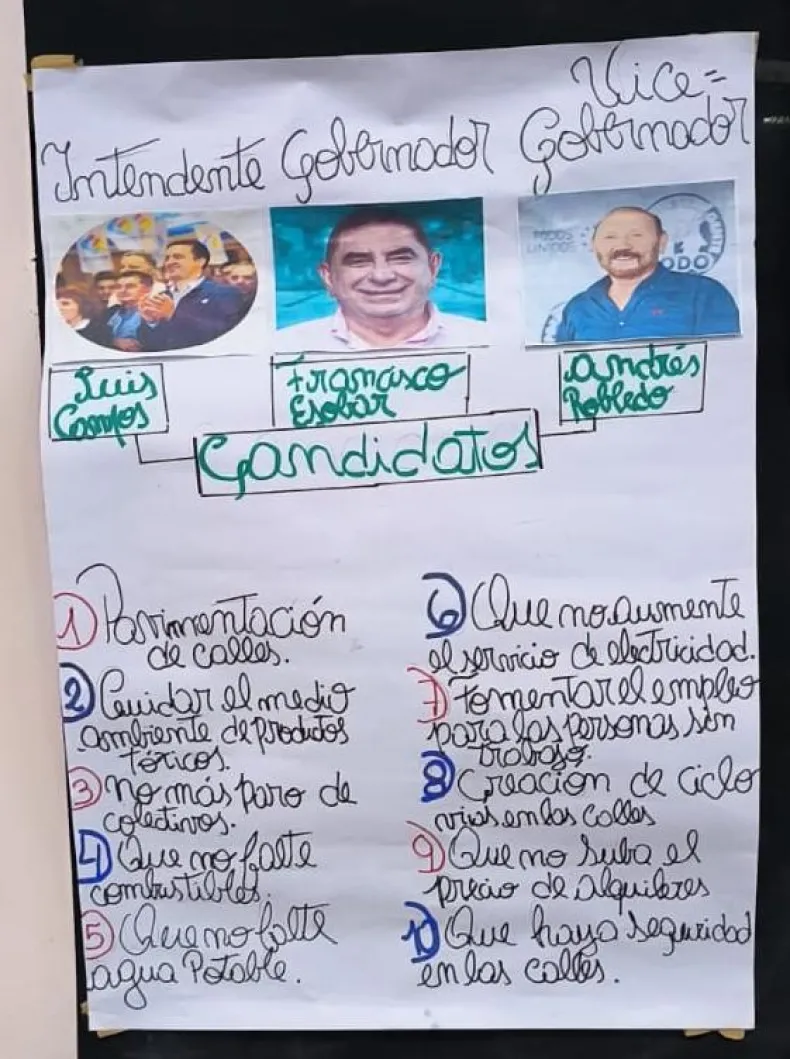 Vice=
Intendente Gobernador Gobernador
TODOS
UNIDOS
TODO
Luis
Campos
Francisco
Esobar
Andrés
Robledo
Candidatos
1 Pavimentación
de calles.
2 Cuidar el medio
ambiente de productos
tóxicos.
3 No más paro de
colectivos.
4 Que no falte
combustibles.
5 Que no falte
agua Potable.
6 Que no aumente
el servicio de electricidad.
7 Fomentar el empleo
para las personas sin
trabajo.
8 Creación de ciclo
vias en las calles
9 Que no suba el
precio de alquileres
10 Que haya seguridad
en las calles.